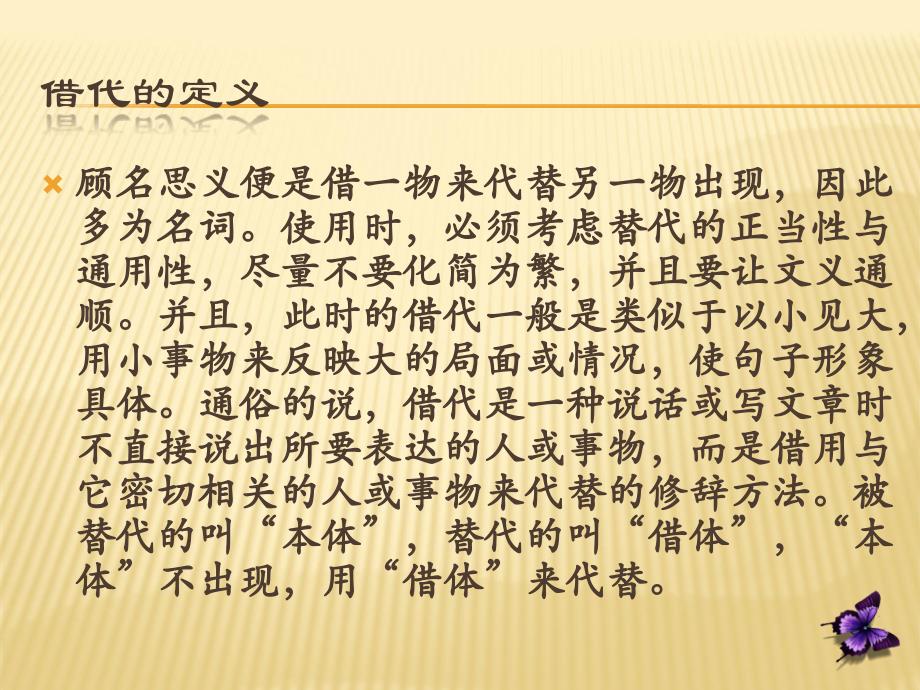 借代的定义
顾名思义便是借一物来代替另一物出现，因此
多为名词。使用时，必须考虑替代的正当性与
通用性，尽量不要化简为繁，并且要让文义通
顺。并且，此时的借代一般是类似于以小见大，
用小事物来反映大的局面或情况，使句子形象
具体。通俗的说，借代是一种说话或写文章时
不直接说出所要表达的人或事物，而是借用与
它密切相关的人或事物来代替的修辞方法。被
替代的叫“本体”，替代的叫“借体”，“本
体”不出现，用“借体”来代替。